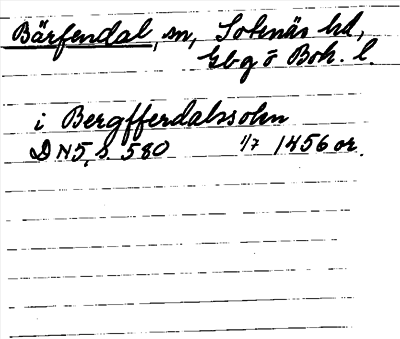 Bärfendal, sn, Sotenäs hd,
Gbg o Boh. l.
i Bergfferdalssokn
DN 5, s. 580 1/7 1456 or.